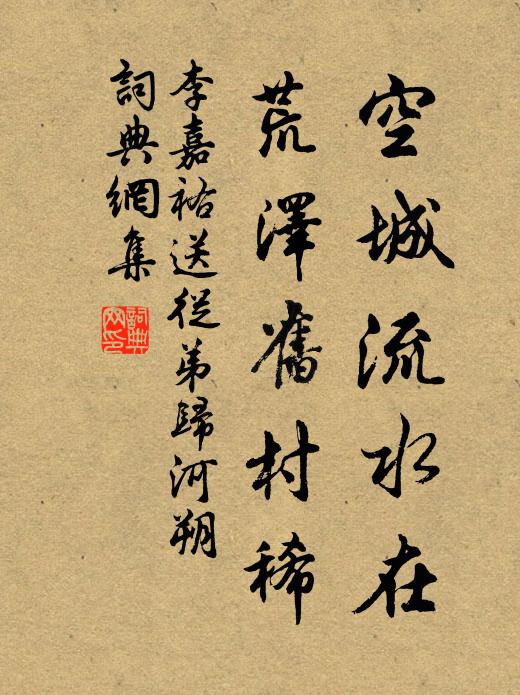 空城流水在
荒澤舊村稀
李嘉祐送從弟歸河朔
詞典網集
詞典網印